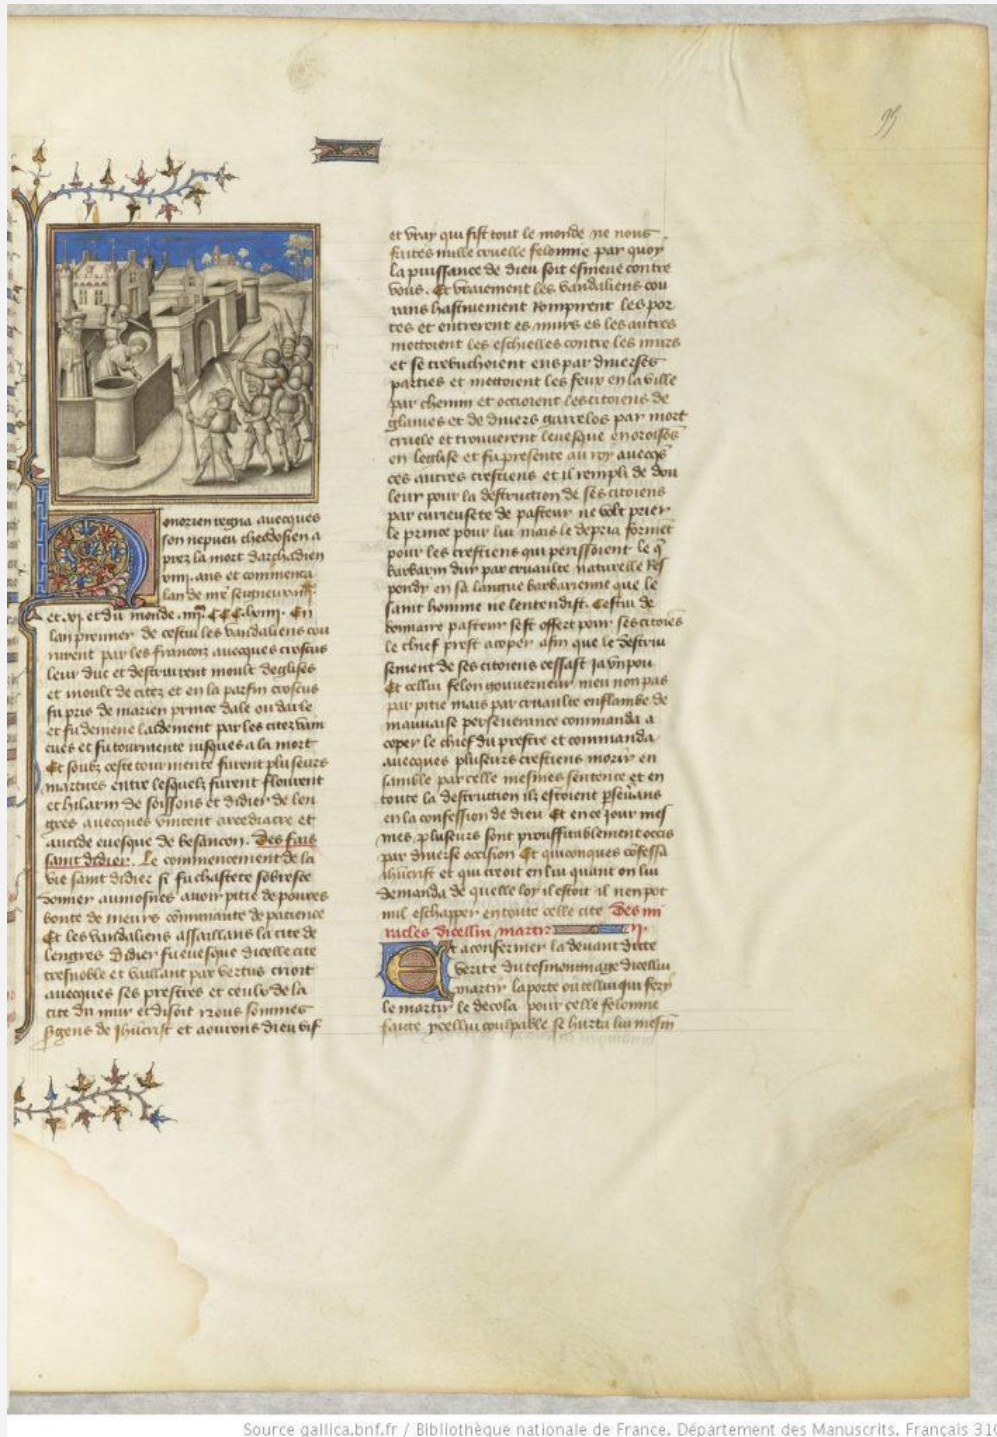 95
onorien regna avecques
son nepueu theodosien a
prez la mort darchadien
xviii. ans et commenca
lan de nre seigneur
et xi et du monde
lan premier de cestui les vandaliens cou
rurent par les francois avecques croscus
leur duc et destruirent moult deglises
et moult de citez et en la parfin croscus
fu pris de marien prince dale ou darle
et fu demene laidement par les citez vain
cues et fu tourmente iusques a la mort
Et soubz ceste tourmente furent pluseurs
martirs entre lesquelz furent flourent
et hilarin de soissons et didier de len
gres avecques vincent arcediacre et
antide evesque de besancon. Des fais
saint didier. Le commencement de la
vie saint didier si fu chastete sobresce
donner aumosnes avoir pitie de povres
bonte de meurs continance de pacience
Et les vandaliens assaillans la cite de
lengres didier fu evesque dicelle cite
tresnoble et vaillant par vertus crioit
avecques ses prestres et ceulx de la
cite du mur et disoit nous sommes
gens de ihucrist et aourons dieu vif
et vray qui fist tout le monde ne nous
faites nulle cruelle felonnie par quoy
la puissance de dieu soit esmeue contre
vous. Et vraiement les vandaliens cou
rans hastivement rompirent les por
tes et entrerent es murs et les autres
mettoient les eschielles contre les murs
et se trebuchoient ens par diverses
parties et mettoient les feux en la ville
par chemin et occioient les citoiens de
glaives et de divers garrelos par mort
cruele et trouverent levesque en oroisons
en leglise et fu presente au roy avecqs
ces autres crestiens et il rempli de dou
leur pour la destruction de ses citoiens
par curieusete de pasteur ne volt prier
le prince pour lui mais le depria forment
pour les crestiens qui perissoient le q
barbarin dur par cruaulte naturelle res
pondy en sa langue barbarienne que le
saint homme ne lentendist. Cestui de
bonnaire pasteur sest offert pour ses citoies
le chief prest a coper afin que le destrui
sement de ses citoiens cessast ja un pou
Et cellui felon gouverneur meu non pas
par pitie mais par cruaulte enflambe de
mauvaise perseverance commanda a
coper le chief du prestre et commanda
avecques pluseurs crestiens morir en
samble par celle mesmes sentence et en
toute la destruction ilz estoient psevans
en la confession de dieu Et en ce jour mes
mes pluseurs sont prouffitablement occis
par diverse occision Et quiconques cofessa
ihucrist et qui creoit en lui quant on lui
demanda de quelle loy il estoit il nen pot
nul eschapper en toute celle cite Des mi
racles dicellui martir
Et a confermer la devant dicte
verite du tesmoingnage dicellui
martir la porte ou cellui qui fery
le martir le decola pour celle felonnie
faicte ycellui coulpable se hurta lui mesm
Source gallica.bnf.fr / Bibliothèque nationale de France. Département des Manuscrits. Français 310